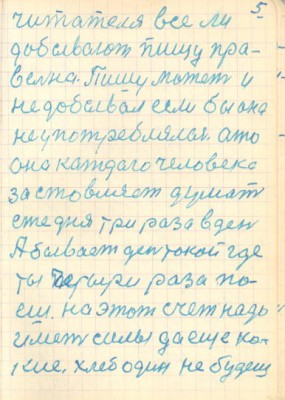 5
читателя все ли
добывают пищу пра-
велна. Пишу может и
не добывал если бы она
не употреблялся. а то
она каждаго человека
застовляет думать
ежедня три раза в ден
А бывает ден токой где
ты чеtыри раза по-
еш. на этот счет надь
иметь силы да еще ка-
кие. хлеб один не будеш